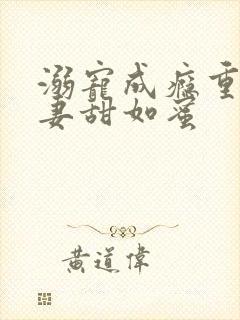 溺寵成癮重
妻甜如蜜
黄道偉